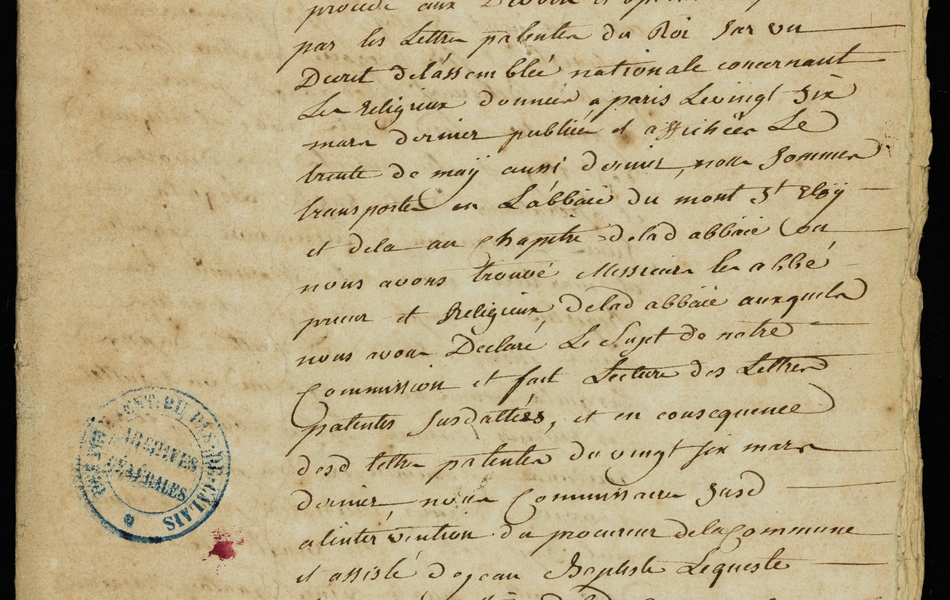 procede aux
par les Lettres patentes du Roi Sur un
Decret de lassemblée nationale concernant
Les Religieux données a paris Levingt Six
mars dernier publiées et affichées Le
trente de maÿ aussi dernier, nous Sommes
transportés en L'abbaie du mont St Eloÿ
et dela au Chapitre delad abbaie ou
nous avons trouvé Messieurs les abbé
prieur et Religieux delad abbaie auxquels
nous avons Declaré Le Sujet de notre
Commission et fait Lecture des Lettres
patentes Susdattées, et en consequence
desd lettres patentes du vingt Six mars
dernier nous Commissaires Susd
alintervention du procureur delaCommune
et assisté de jean Baptiste Lequeste
DEPARTEMENT DU PAS-DE-CALAIS
ARCHIVES
GÉNÉRALES